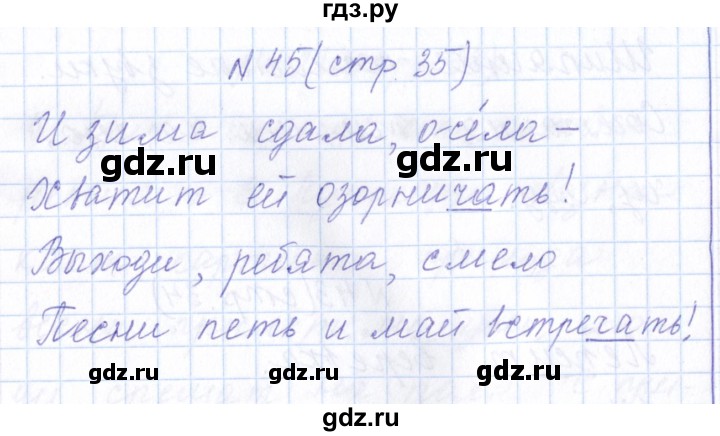 гдз.ру
N 45 (стр. 35)
И зима сдала, осела –
gdz.ru gdz.ru
Хватит ей озорничать!
Выходи, ребята, смело
Песни петь и май встречать!
gdz.ru gdz.ru gdz.ru
gdz.ru